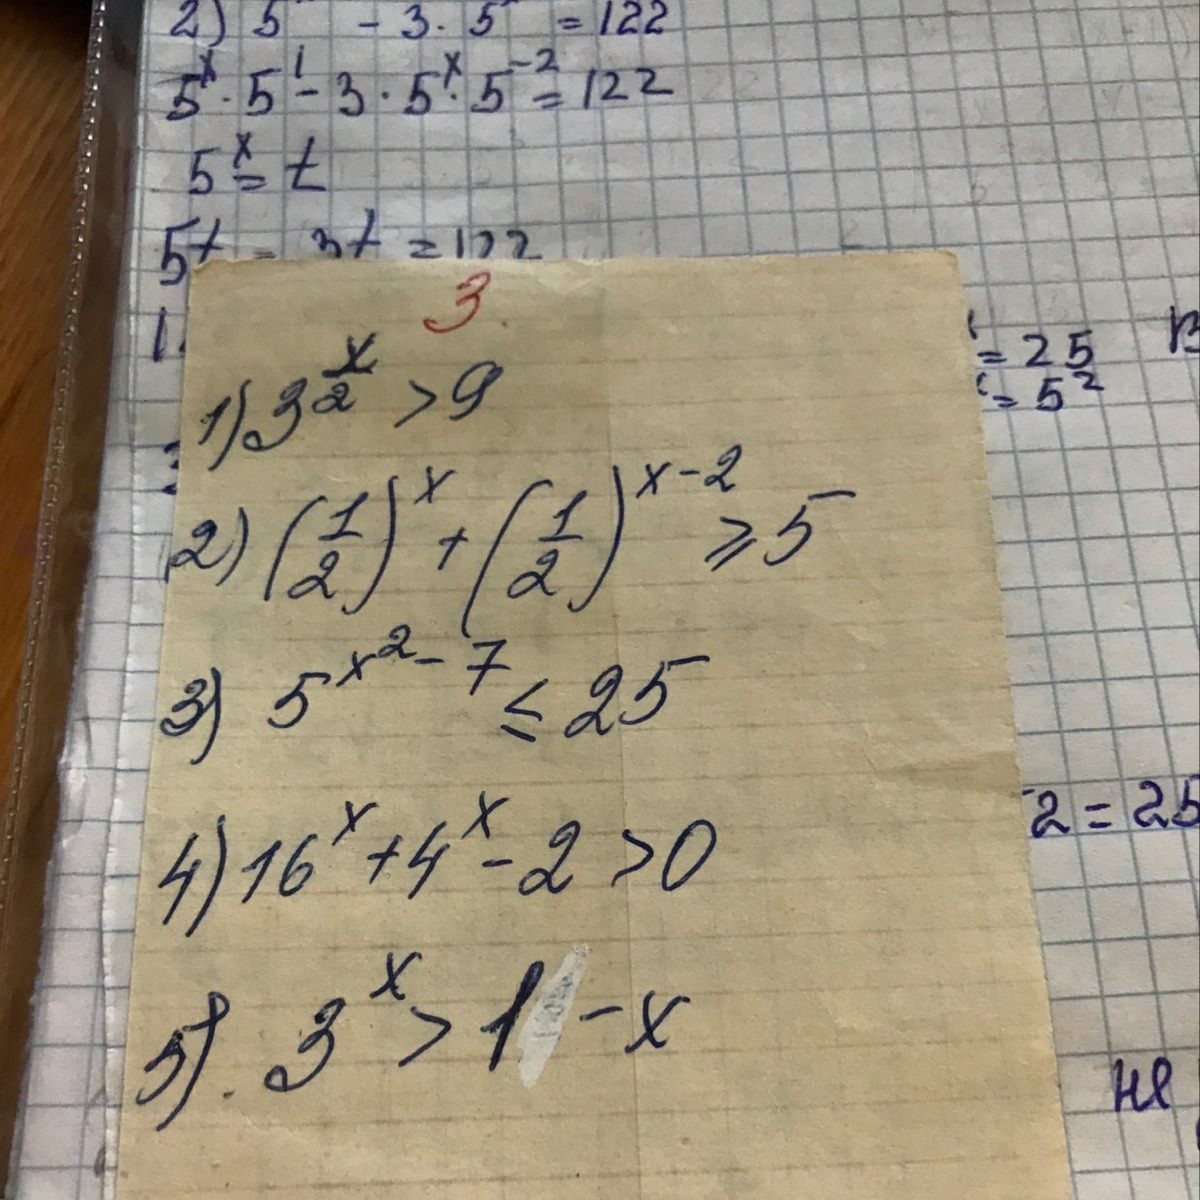 2) 5 - 3 · 5 = 122
5^x · 5^1 - 3 · 5^x · 5^-2 = 122
5^x = t
5t - 3t = 122
= 25
= 5^2
3
1) 3^(x/2) > 9
2) (1/2)^x + (1/2)^(x-2) ≥ 5
3) 5^(x^2-7) ≤ 25
2 = 25
4) 16^x + 4^x - 2 > 0
5) 3^x > 1 - x
не